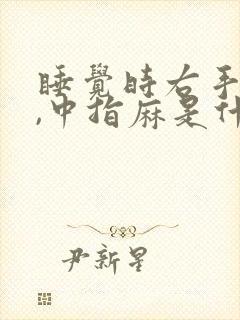 睡覺时右手
,中指麻是什
尹新星